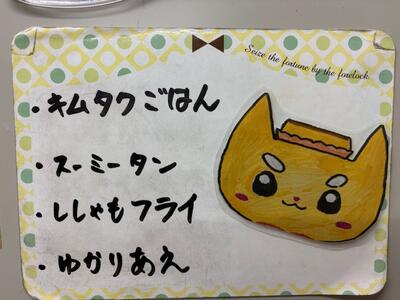 Seize the fortune by the forelock.
・キムタクごはん
・スーミータン
・ししゃもフライ
・ゆかりあえ